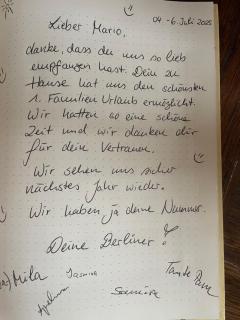 04.-6. Juli 2025
Lieber Mario,
danke, dass du uns so lieb
empfangen hast. Dein zu
Hause hat uns den schönsten
1. Familien Urlaub ermöglicht.
Wir hatten so eine schöne
Zeit und wir danken dir
für dein Vertrauen.
Wir sehen uns sicher
nächstes Jahr wieder.
Wir haben ja deine Nummer.
Deine Berliner!
Mila Jasmina
Samira